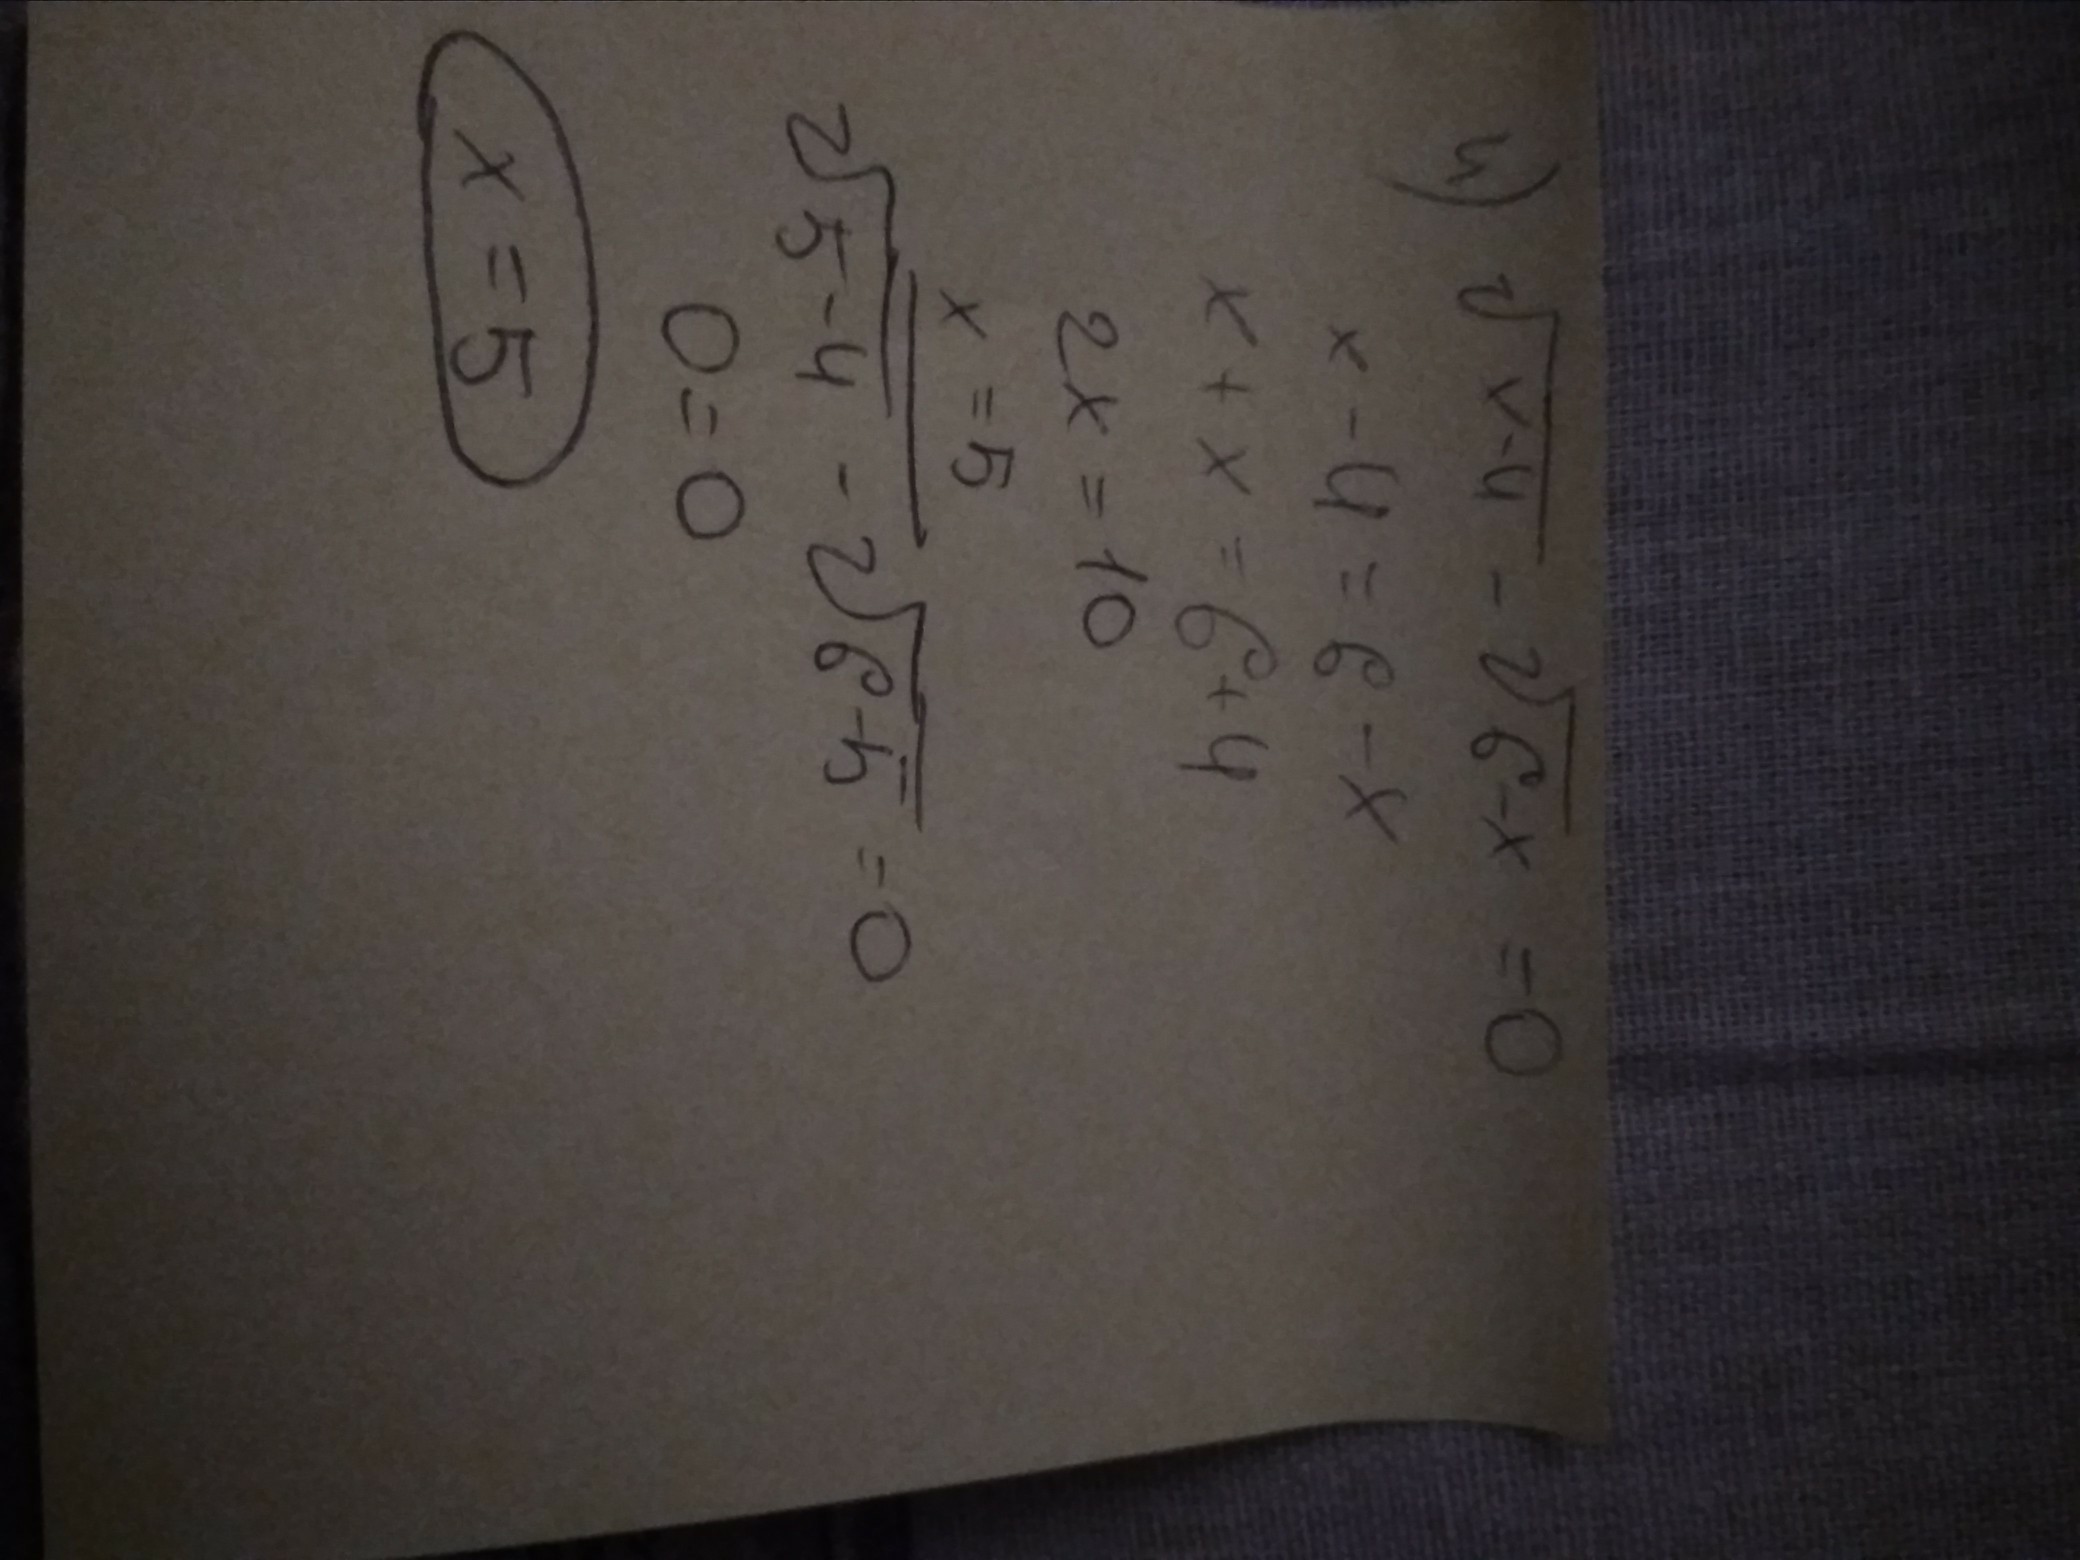 4) √x-4 - √6-x = 0
x - 4 = 6 - x
x + x = 6 + 4
2x = 10
x = 5
√5-4 - √6-5 = 0
0 = 0
x = 5